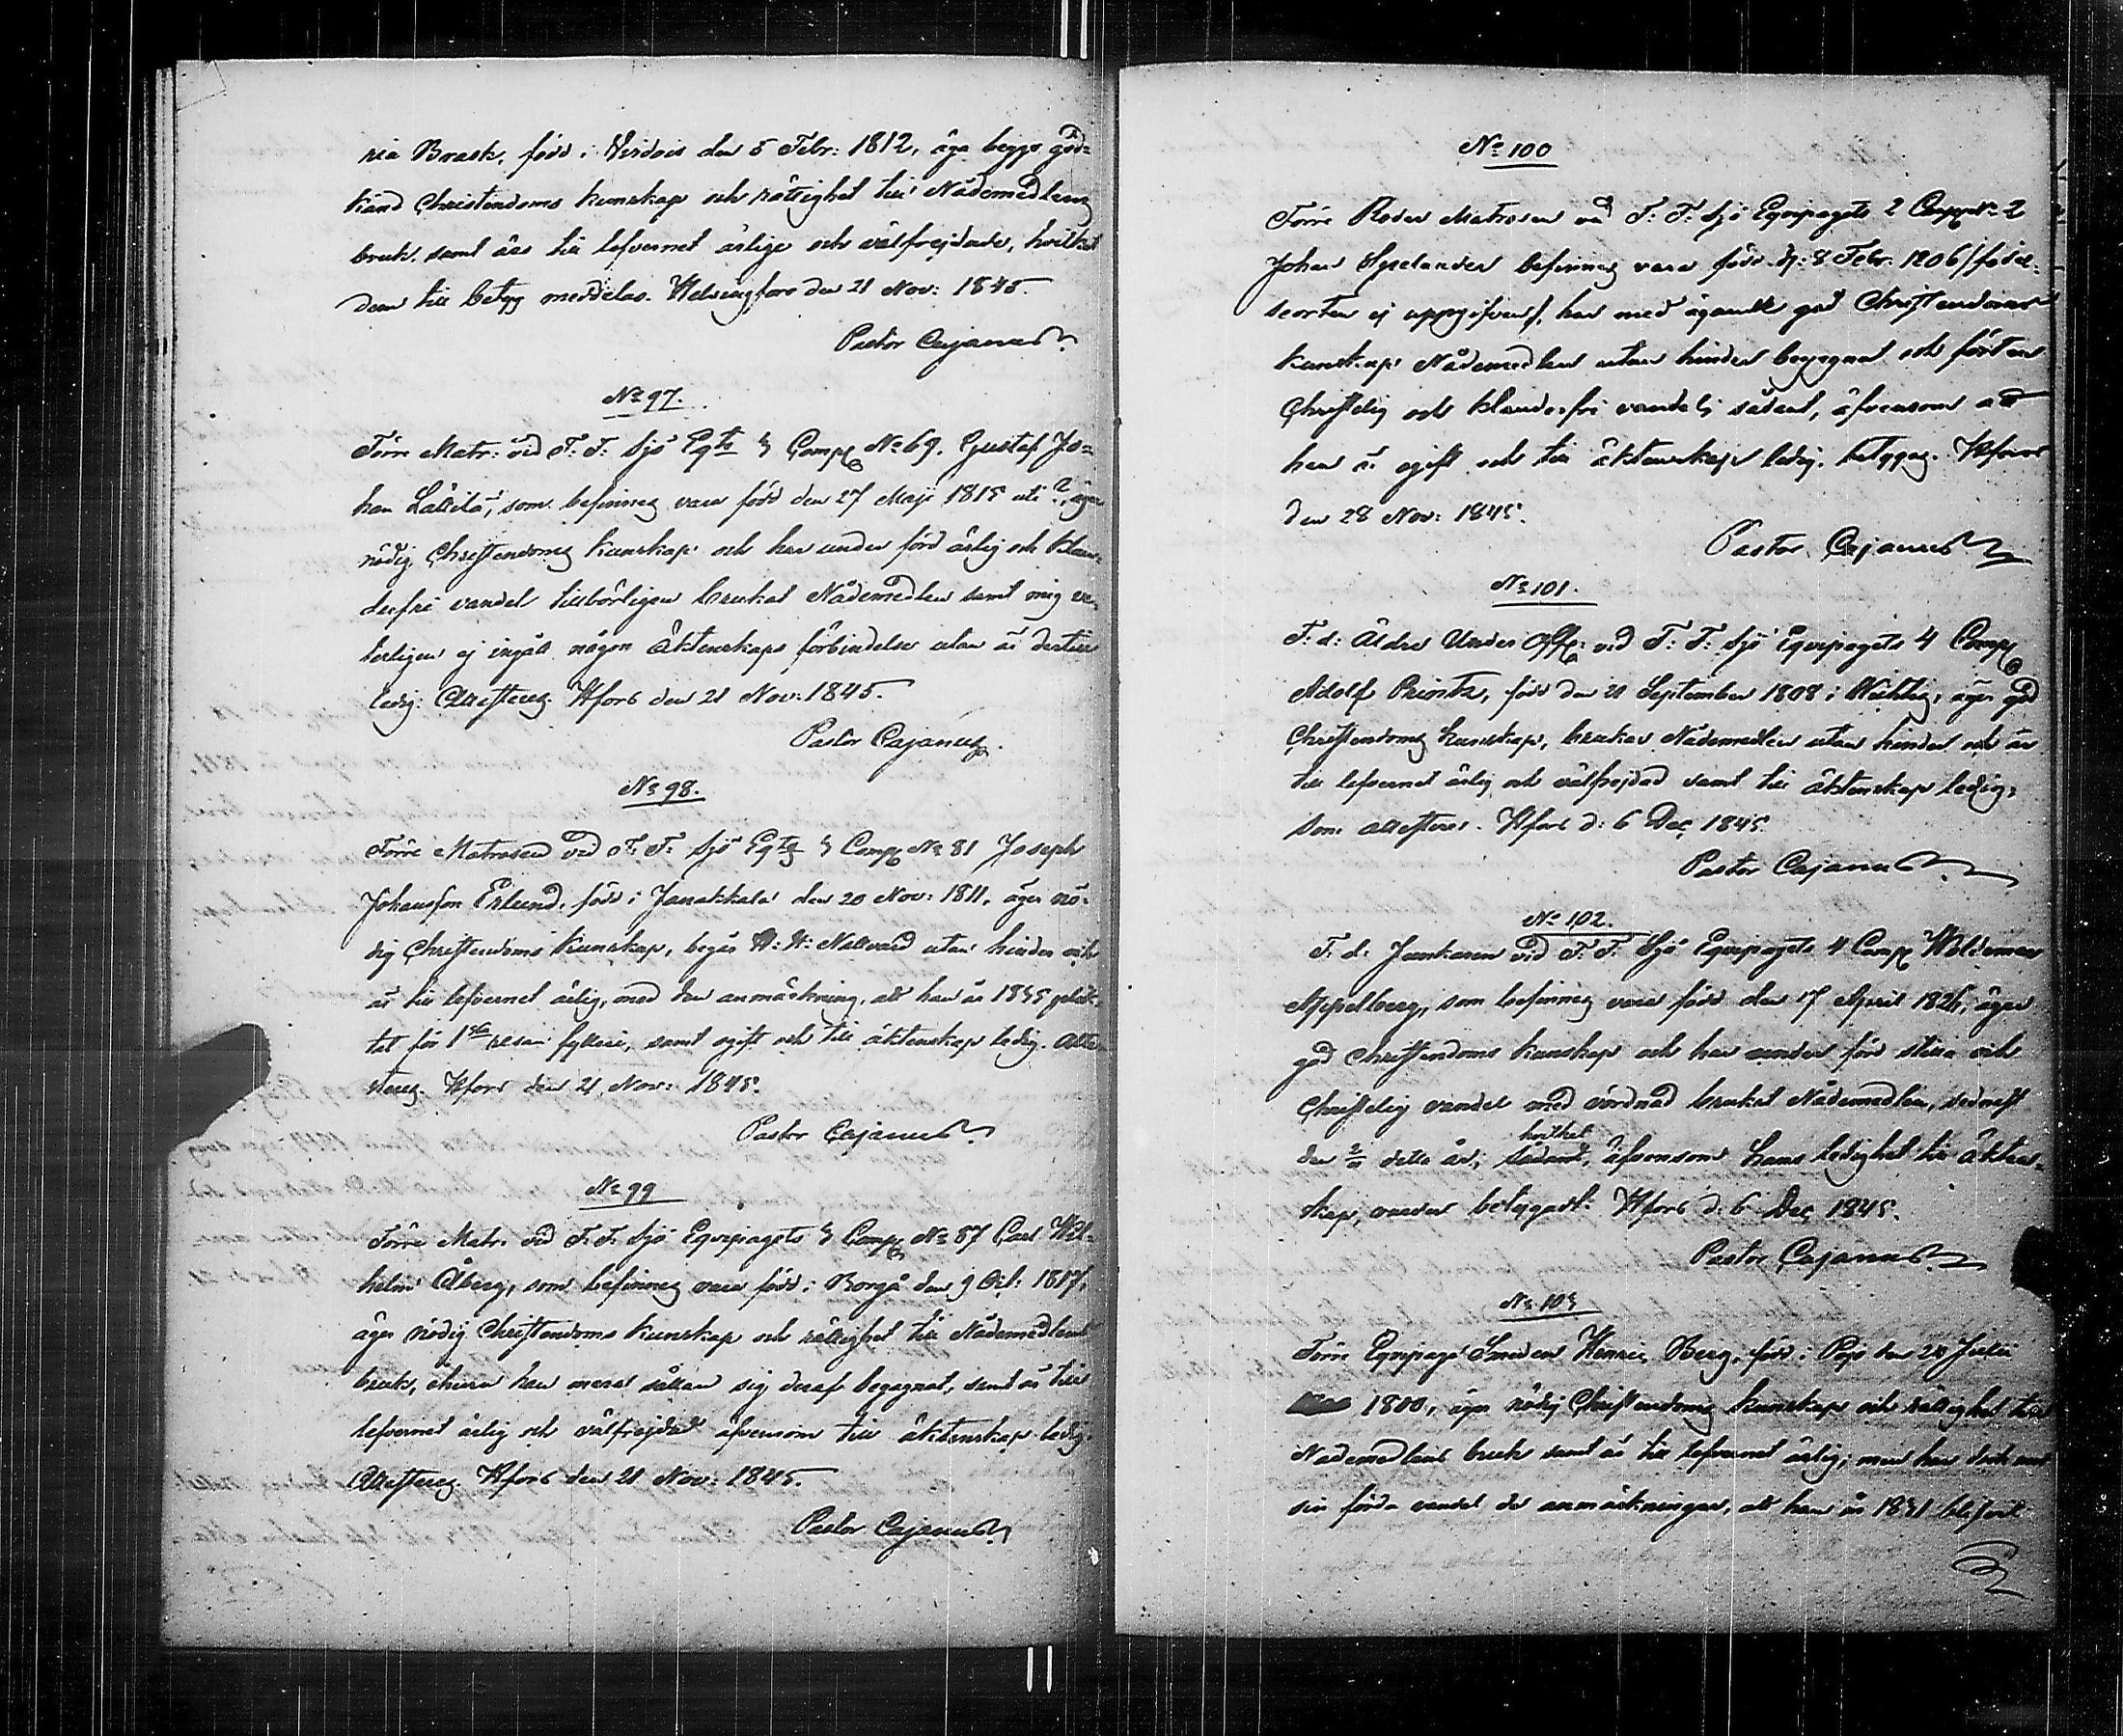 ria Brask, född i Virdois den 5 Febr: 1812, äga begge god-
känd Christendoms kunskap och rättighet till Nådemedlens
bruk, samt äro till lefvernet ärlige och välfrejdade, hvilket
dem till betyg meddelas. Helsingfors den 21 Nov: 1845.
Pastor Cajanus
No 97.
Förre Matr: vid F: F: Sjö Eqts 3 Comp No 69. Gustaf Jo-
han Lättilä, som befinnes vara född den 27 Maji 1815 uti ?, äger
nödig Christendoms kunskap och har under förd ärlig och klan-
derfri vandel tillbörligen brukat Nådemedlen samt mig ve-
terligen ej ingått någon äktenskaps förbindelse utan är dertill
ledig: Attesteras Hfors den 21 Nov: 1845.
Pastor Cajanus
No 98.
Förre Matrosen vid F: F: Sjö Eqts 3 Comp No 81 Joseph
Johansson Erlund, född i Janakkala den 20 Nov: 1811, äger nö-
dig Christendoms kunskap, begår H: H: Nattvard utan hinder och
är till lefvernet ärlig, med den anmärkning, att han år 1835 plik-
tat för 1sta resan fylleri, samt ogift och till äktenskap ledig. Atte-
steras. Hfors den 21 Nov: 1845.
Pastor Cajanus
No 99
Förre Matr. vid F: F: Sjö Equipagets 3 Comp No 87 Carl Wil-
helm Åberg, som befinnes vara född i Borgå den 9 Oct: 1817,
äger nödig Christendoms kunskap och rättighet till Nådemedlens
bruk, ehuru han mera sällan sig deraf begagnat, samt är till
lefvernet ärlig och välfrejdad äfvensom till äktenskap ledig.
Attesteras. Hfors den 21 Nov: 1845.
Pastor Cajanus
No 100
Förre Matrosen vid F: F: Sjö Equipagets 2 Comp No 2
Johan befinnes vara född d: 8 Febr. 1806 /: födel-
seorten ej uppgifven :/, har med ägande god Christendoms
kunskap Nådemedlen utan hinder begagnat och fört en
Christelig och klanderfri vandel; sådant, äfvensom att
han är ogift och till äktenskap ledig, betygas. Hfors
den 28 Nov: 1845.
Pastor Cajanus
No 101.
F: d: Äldre Under Off: vid F: F: Sjö Equipagets 4 Comp
Adolf Printz, född den 21 September 1808 i Wichtis, äger god
Christendoms kunskap, brukar Nådemedlen utan hinder och är
till lefvernet ärlig och välfrejdad samt till äktenskap ledig,
som attesteras. Hfors d: 6 Dec 1845.
Pastor Cajanus
No 102.
F. d: Junkaren vid F: F: Sjö Equipagets 4 Comp Woldemar
Appelberg, som befinnes vara född den 17 April 1826, äger
god Christendoms kunskap och har under förd stilla och
Christelig vandel med vördnad brukat Nådemedlen, sednast
den detta år; hvilket äfvensom hans ledighet till äkten-
skap, varder betygadt. Hfors d: 6 Dec 1845.
Pastor Cajanus
No 103
Förre Equipage Smeden Henric Berg, född i Pojo den 20 Julii
1800, äger nödig Christendoms kunskap och rättighet till
Nådemedlens bruk samt är till lefvernet ärlig, men har dock
sin förda vandel de anmärkningar, att han år 1831 blifvit